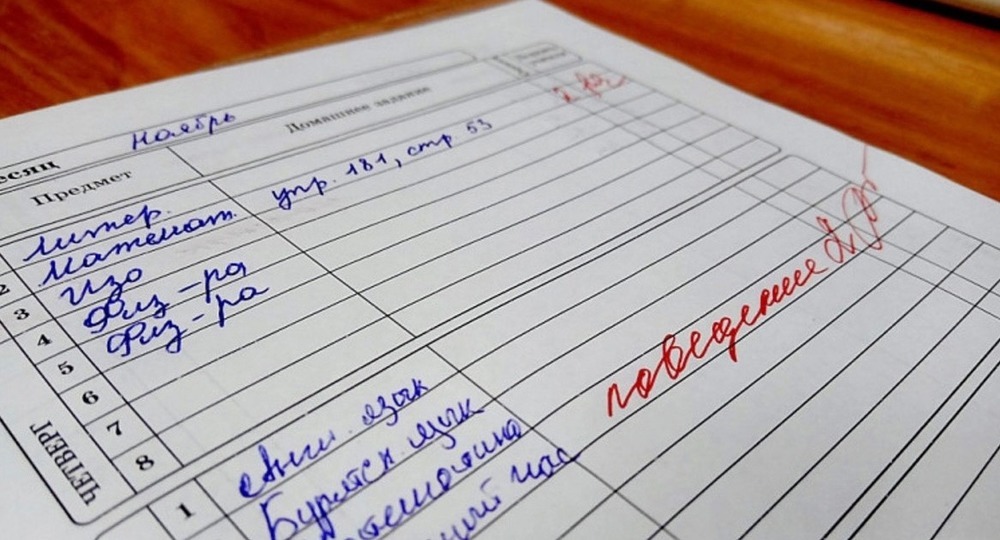 есяц Ноябрь
Предмет Домашнее задание
Литер.
2 Математ. упр. 181, стр. 53
3 Изо
4 Физ-ра
5 Физ-ра
6
7
8
ЧЕТВЕРГ
поведение
1 Англ. язык
Бурятск. язык
час